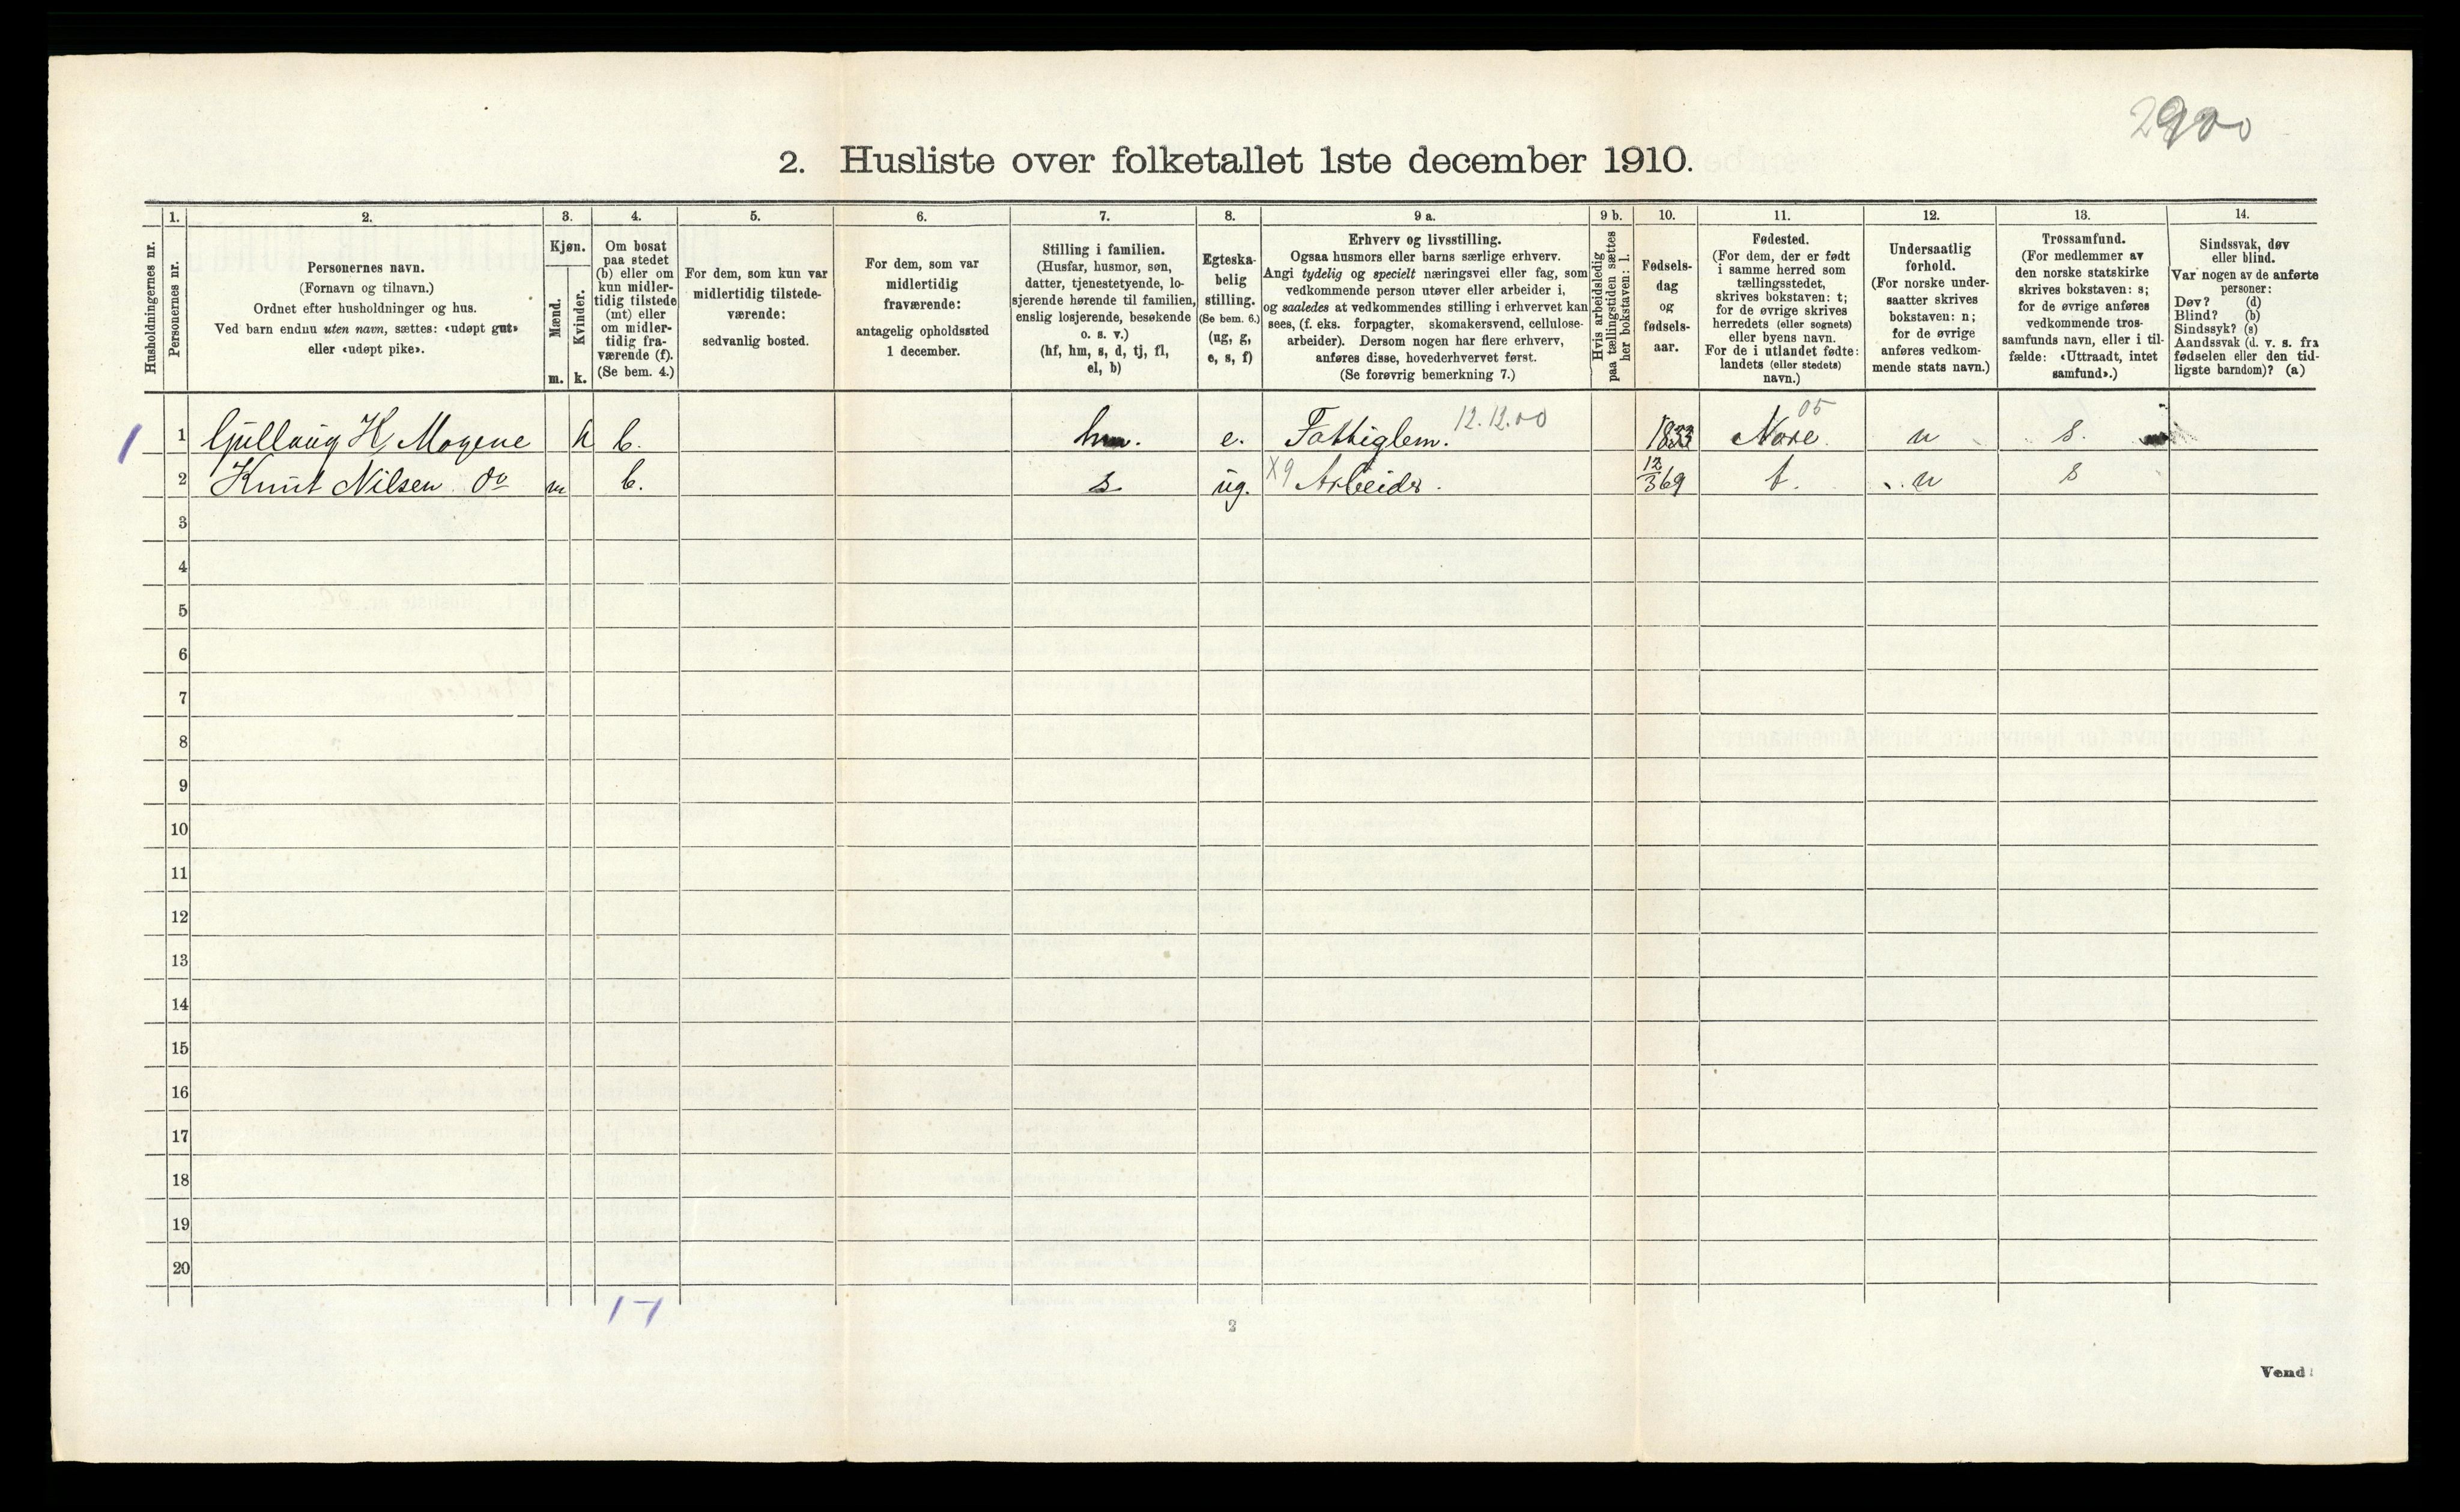 2900
2. Husliste over folketallet 1ste december 1910.
1. 2. 3. 4. 5. 6. 7. 8. 9 a. 9 b. 10. 11. 12. 13. 14.
Husholdningernes nr.
Personernes nr.
Personernes navn.
(Fornavn og tilnavn.)
Ordnet efter husholdninger og hus.
Ved barn endnu uten navn, sættes: «udøpt gut»
eller «udøpt pike».
Kjøn.
Mænd.
Kvinder.
m. k.
Om bosat
paa stedet
(b) eller om
kun midler-
tidig tilstede
(mt) eller
om midler-
tidig fra-
værende (f).
(Se bem. 4.)
For dem, som kun var
midlertidig tilstede-
værende:
sedvanlig bosted.
For dem, som var
midlertidig
fraværende:
antagelig opholdssted
1 december.
Stilling i familien.
(Husfar, husmor, søn,
datter, tjenestetyende, lo-
sjerende hørende til familien,
enslig losjerende, besøkende
o. s. v.)
(hf, hm, s, d, tj, fl,
el, b)
Egteska-
belig
stilling.
(Se bem. 6.)
(ug, g,
e, s, f)
Erhverv og livsstilling.
Ogsaa husmors eller barns særlige erhverv.
Angi tydelig og specielt næringsvei eller fag, som
vedkommende person utøver eller arbeider i,
og saaledes at vedkommendes stilling i erhvervet kan
sees, (f. eks. forpagter, skomakersvend, cellulose-
arbeider). Dersom nogen har flere erhverv,
anføres disse, hovederhvervet først.
(Se forøvrig bemerkning 7.)
Hvis arbeidsledig
paa tællingstiden sættes
her bokstaven: l.
Fødsels-
dag
og
fødsels-
aar.
Fødested.
(For dem, der er født
i samme herred som
tællingsstedet,
skrives bokstaven: t;
for de øvrige skrives
herredets (eller sognets)
eller byens navn.
For de i utlandet fødte:
landets (eller stedets)
navn.)
Undersaatlig
forhold.
(For norske under-
saatter skrives
bokstaven: n;
for de øvrige
anføres vedkom-
mende stats navn.)
Trossamfund.
(For medlemmer av
den norske statskirke
skrives bokstaven: s;
for de øvrige anføres
vedkommende tros-
samfunds navn, eller i til-
fælde: «Uttraadt, intet
samfund».)
Sindssvak, døv
eller blind.
Var nogen av de anførte
personer:
Døv? (d)
Blind? (b)
Sindssyk? (s)
Aandssvak (d. v. s. fra
fødselen eller den tid-
ligste barndom)? (a)
1 1 Gullaug K. Mogene k b. hm. e. Fattiglem. 12.12.00 1833 Nore 05 n s.
2 Knut Nilsen do m b. s ug. X9 Arbeider. 12/3 69 t. n s
3
4
5
6
7
8
9
10
11
12
13
14
15
16
17
18
19
20
1 - 1
2
Vend!